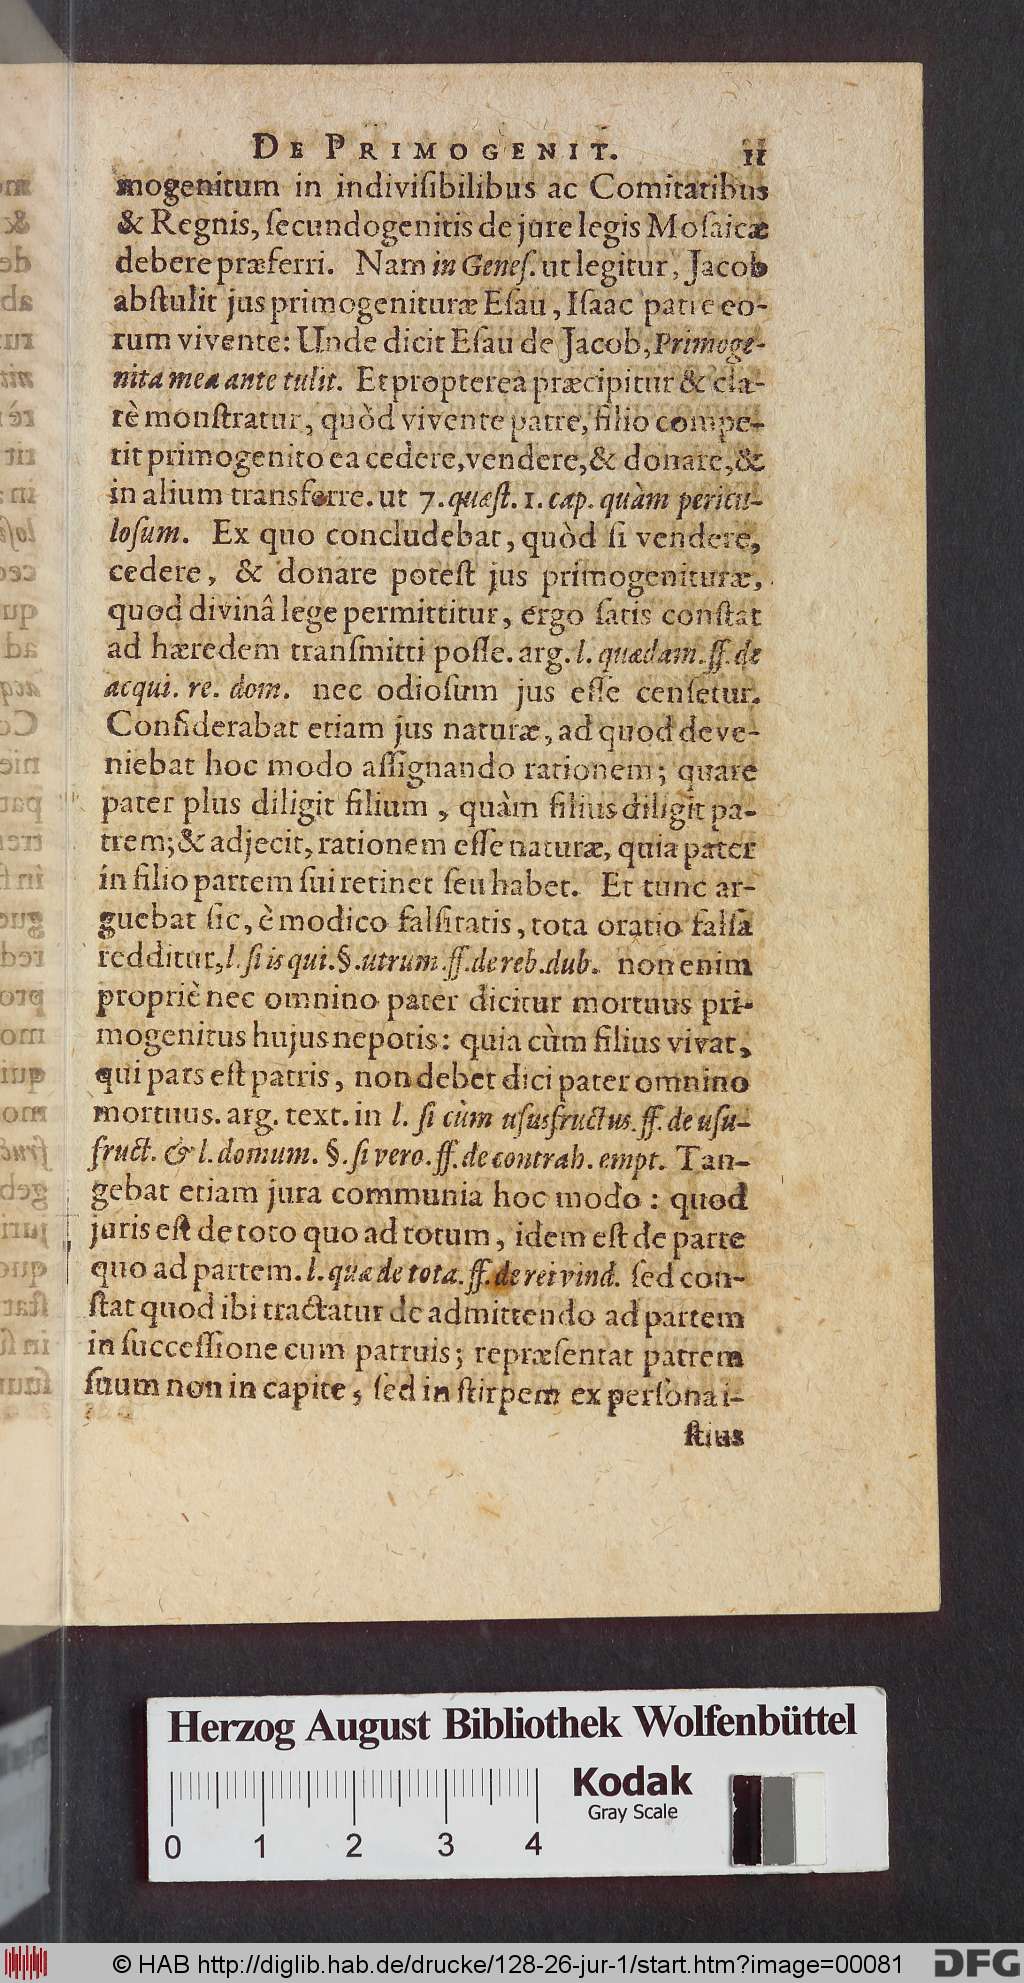 DE PRIMOGENIT. 11
mogenitum in indivisibilibus ac Comitatibus
& Regnis, secundogenitis de jure legis Mosaicæ
debere præferri. Nam in Genes. ut legitur, Jacob
abstulit jus primogenituræ Esau, Isaac patre eo-
rum vivente: Unde dicit Esau de Jacob, Primoge-
nita mea ante tulit. Et propterea præcipitur & cla-
rè monstratur, quòd vivente patre, filio compe-
tit primogenito ea cedere, vendere, & donare, &
in alium transferre. ut 7. quæst. 1. cap. quàm pericu-
losum. Ex quo concludebat, quòd si vendere,
cedere, & donare potest jus primogenituræ,
quod divinâ lege permittitur, ergo satis constat
ad hæredem transmitti posse. arg. l. quædam. ff. de
acqui. re. dom. nec odiosum jus esse censetur.
Considerabat etiam jus naturæ, ad quod deve-
niebat hoc modo assignando rationem; quare
pater plus diligit filium, quàm filius diligit pa-
trem; & adjecit, rationem esse naturæ, quia pater
in filio partem sui retinet seu habet. Et tunc ar-
guebat sic, è modico falsitatis, tota oratio falsa
redditur, l. si is qui. §. utrum. ff. de reb. dub. non enim
propriè nec omnino pater dicitur mortuus pri-
mogenitus hujus nepotis: quia cùm filius vivat,
qui pars est patris, non debet dici pater omnino
mortuus. arg. text. in l. si cùm ususfructus. ff. de usu-
fruct. & l. domum. §. si vero. ff. de contrah. empt. Tan-
gebat etiam jura communia hoc modo: quod
juris est de toto quo ad totum, idem est de parte
quo ad partem. l. quæ de tota. ff. de rei vind. sed con-
stat quod ibi tractatur de admittendo ad partem
in successione cum patruis; repræsentat patrem
suum non in capite, sed in stirpem ex persona i-
stius
Herzog August Bibliothek Wolfenbüttel
Kodak
Gray Scale
0 1 2 3 4
© HAB http://diglib.hab.de/drucke/128-26-jur-1/start.htm?image=00081
DFG